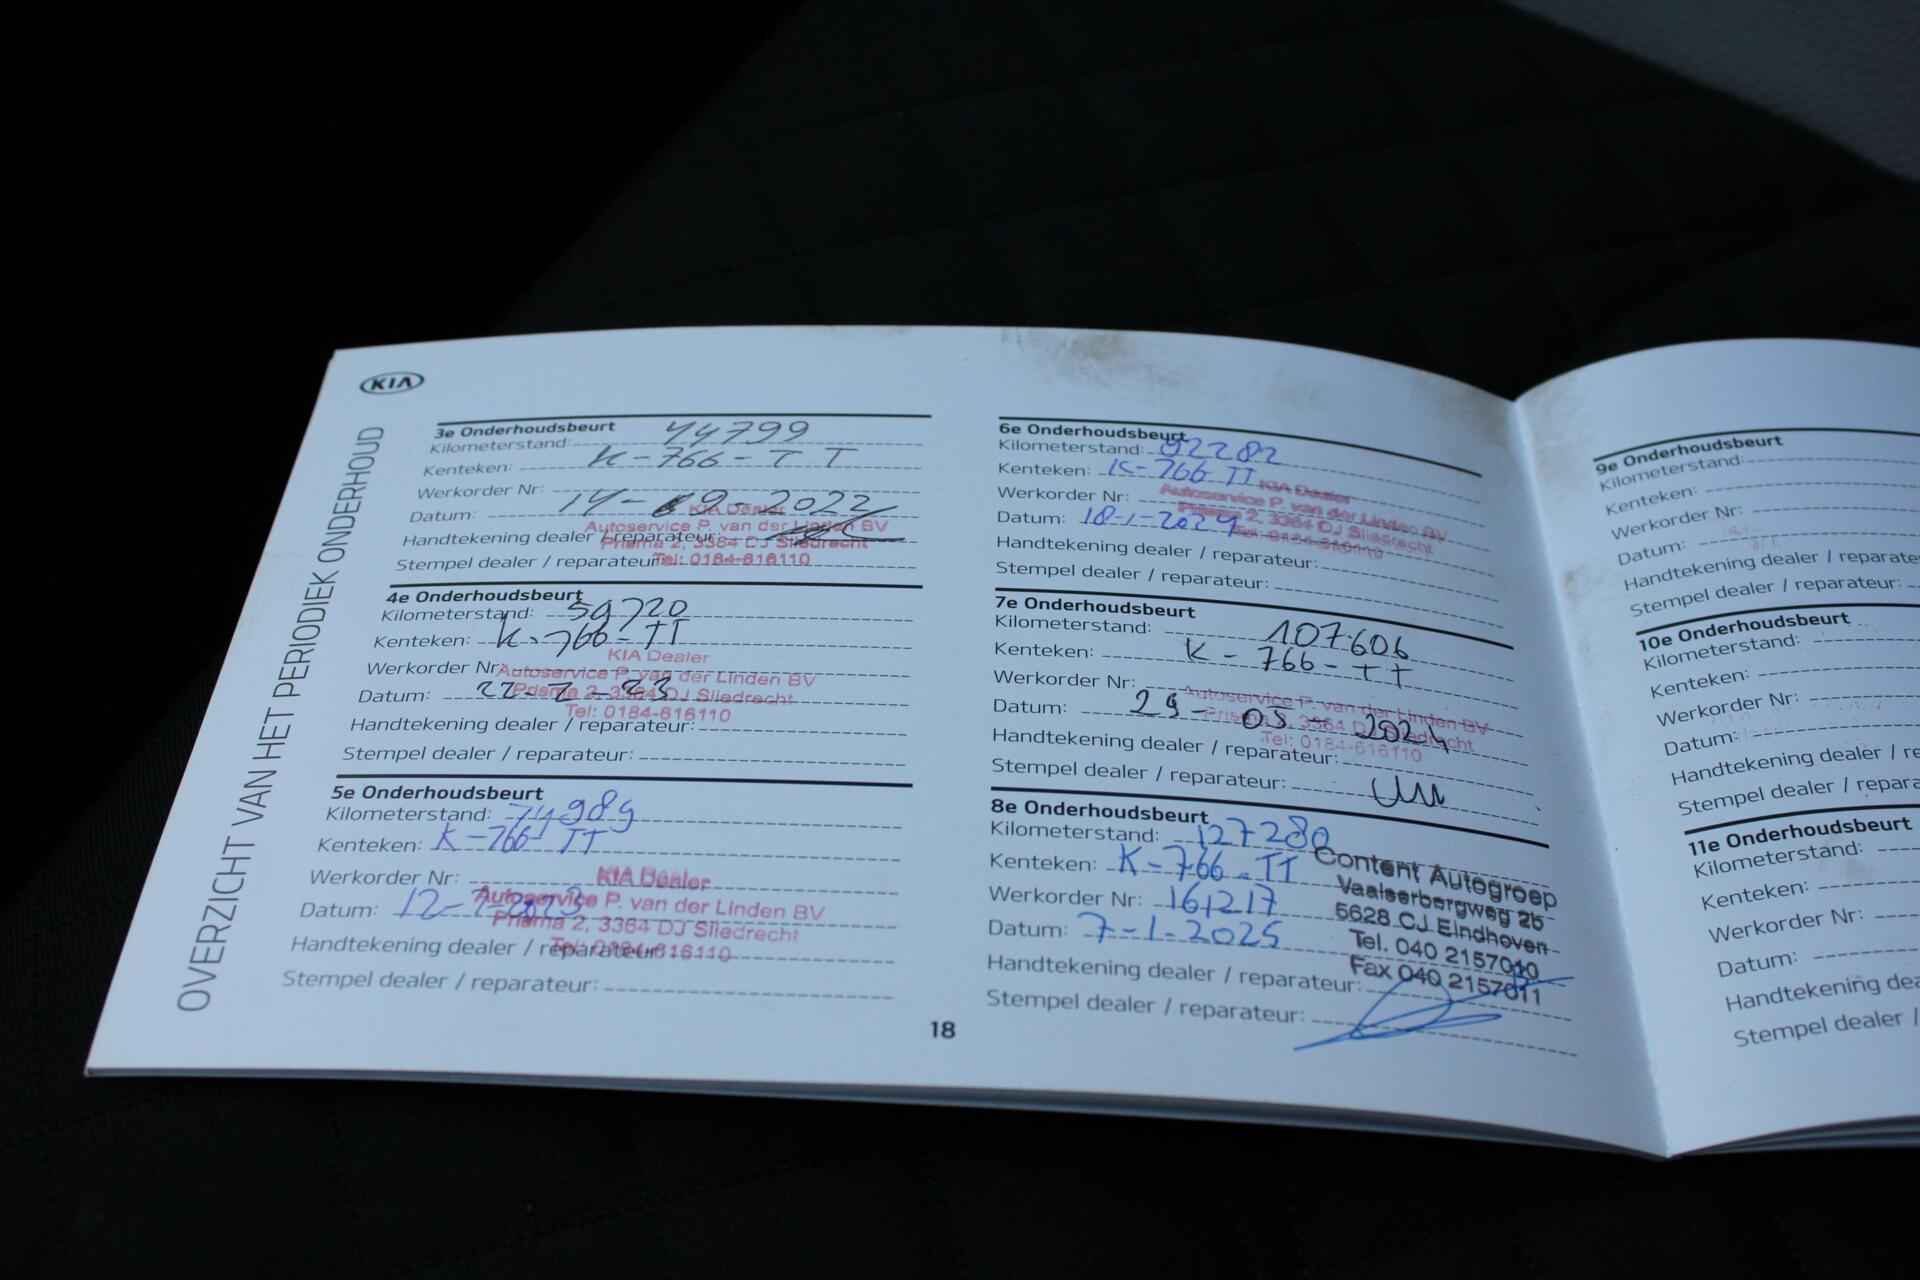 KIA
OVERZICHT VAN HET PERIODIEK ONDERHOUD
3e Onderhoudsbeurt
Kilometerstand: 44799
Kenteken: K-766-TT
Werkorder Nr:
Datum: 14-09-2022
Handtekening dealer / reparateur:
Stempel dealer / reparateur:
KIA Dealer
Autoservice P. van der Linden BV
Prisma 2, 3364 DJ Sliedrecht
Tel: 0184-616110
4e Onderhoudsbeurt
Kilometerstand: 59720
Kenteken: K-766-TT
Werkorder Nr:
Datum: 22-2-23
Handtekening dealer / reparateur:
Stempel dealer / reparateur:
KIA Dealer
Autoservice P. van der Linden BV
Prisma 2, 3364 DJ Sliedrecht
Tel: 0184-616110
5e Onderhoudsbeurt
Kilometerstand: 74989
Kenteken: K-766-TT
Werkorder Nr:
Datum: 12-7-2023
Handtekening dealer / reparateur:
Stempel dealer / reparateur:
KIA Dealer
Autoservice P. van der Linden BV
Prisma 2, 3364 DJ Sliedrecht
Tel: 0184-616110
6e Onderhoudsbeurt
Kilometerstand: 92282
Kenteken: K-766-TT
Werkorder Nr:
Datum: 18-1-2024
Handtekening dealer / reparateur:
Stempel dealer / reparateur:
KIA Dealer
Autoservice P. van der Linden BV
Prisma 2, 3364 DJ Sliedrecht
Tel: 0184-616110
7e Onderhoudsbeurt
Kilometerstand: 107.606
Kenteken: K-766-TT
Werkorder Nr:
Datum: 29-05-2024
Handtekening dealer / reparateur:
Stempel dealer / reparateur:
Autoservice P. van der Linden BV
Prisma 2, 3364 DJ Sliedrecht
Tel: 0184-616110
8e Onderhoudsbeurt
Kilometerstand: 127280
Kenteken: K-766-TT
Werkorder Nr: 161217
Datum: 7-1-2025
Handtekening dealer / reparateur:
Stempel dealer / reparateur:
Content Autogroep
Vaalserbergweg 2b
5628 CJ Eindhoven
Tel. 040 2157010
Fax 040 2157011
18
9e Onderhoudsbeurt
Kilometerstand:
Kenteken:
Werkorder Nr:
Datum:
Handtekening dealer / reparate
Stempel dealer / reparateur:
10e Onderhoudsbeurt
Kilometerstand:
Kenteken:
Werkorder Nr:
Datum:
Handtekening dealer / re
Stempel dealer / repara
11e Onderhoudsbeurt
Kilometerstand:
Kenteken:
Werkorder Nr:
Datum:
Handtekening dea
Stempel dealer /